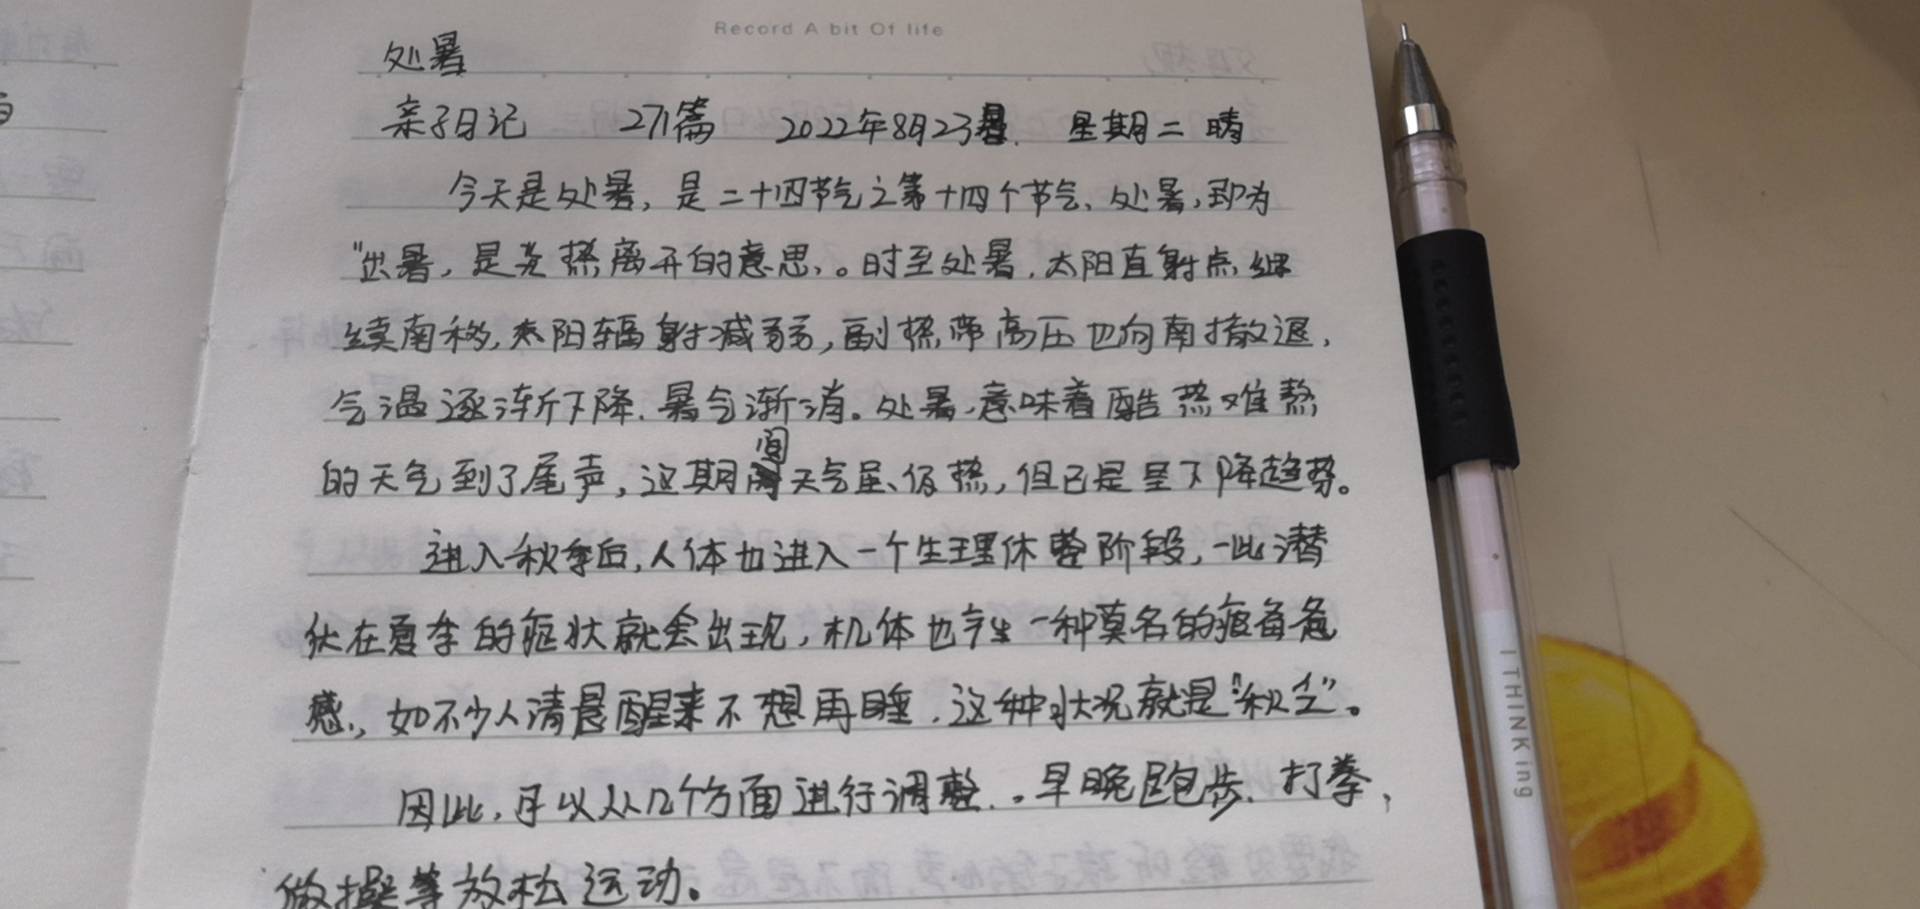 Record A bit Of life
处暑
亲子日记 271篇 2022年8月23 星期二 晴
今天是处暑，是二十四节气之第十四个节气、处暑，即为
"出暑，是炎热离开的意思、。时至处暑，太阳直射点继
续南移，太阳辐射减弱，副热带高压也向南撤退，
气温逐渐下降、暑气渐消。处暑，意味着酷热难熬
的天气到了尾声，这期间天气虽仍热，但已是呈下降趋势。
进入秋季后，人体也进入一个生理休整阶段，一些潜
伏在夏季的症状就会出现，机体也产生一种莫名的疲惫
感，如不少人清晨醒来不想再睡，这种状况就是"秋乏"。
因此，可以从几个方面进行调整、。早晚跑步、打拳，
做操等放松运动。
I THINKing